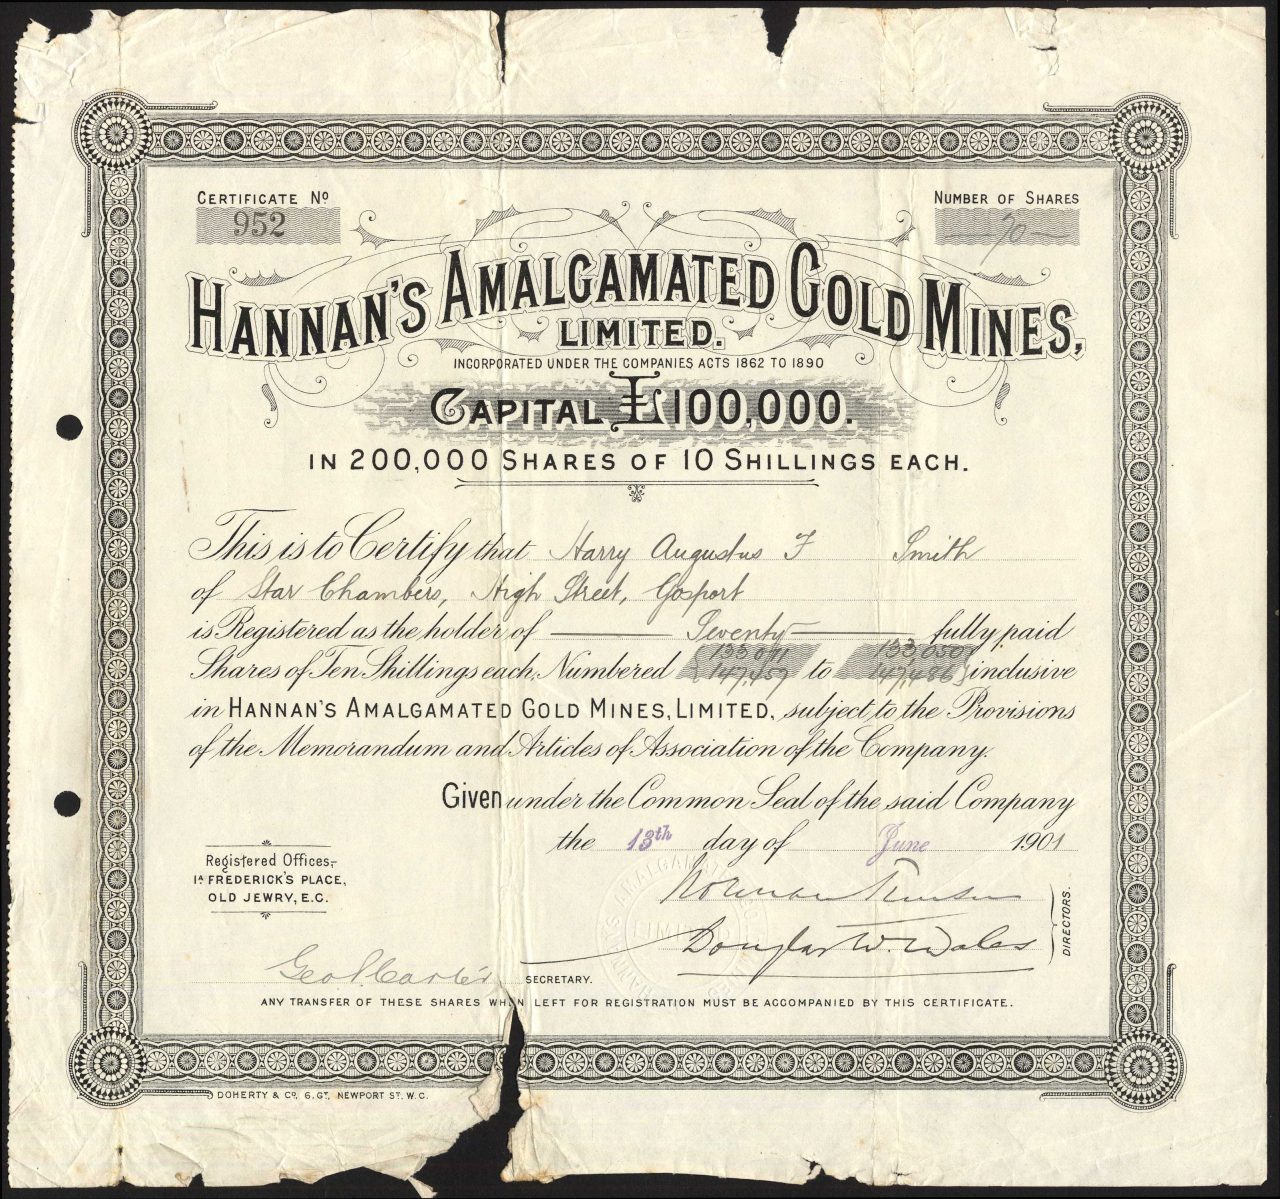 CERTIFICATE Nº
952
NUMBER OF SHARES
— 70 —
HANNAN'S AMALGAMATED GOLD MINES,
LIMITED.
INCORPORATED UNDER THE COMPANIES ACTS 1862 TO 1890
CAPITAL £100,000.
IN 200,000 SHARES OF 10 SHILLINGS EACH.
This is to Certify that Harry Augustus F Smith
of Star Chambers, High Street, Gosport
is Registered as the holder of — Seventy — fully paid
133,050
Shares of Ten Shillings each, Numbered 147,457 to 147,486 inclusive
in HANNAN'S AMALGAMATED GOLD MINES, LIMITED, subject to the Provisions
of the Memorandum and Articles of Association of the Company.
Given under the Common Seal of the said Company
the 13th day of June 1901
Registered Offices,-
1A FREDERICK'S PLACE,
OLD JEWRY, E.C.
Norman
Douglas W. Wales
DIRECTORS.
SECRETARY.
ANY TRANSFER OF THESE SHARES WHEN LEFT FOR REGISTRATION MUST BE ACCOMPANIED BY THIS CERTIFICATE.
DOHERTY & Cº, 6, GT. NEWPORT ST. W.C.